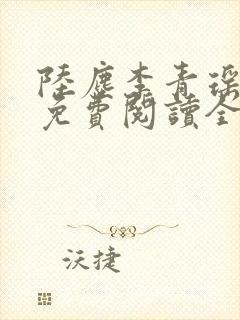 陸塵李青瑤
免費閱讀全
沃捷